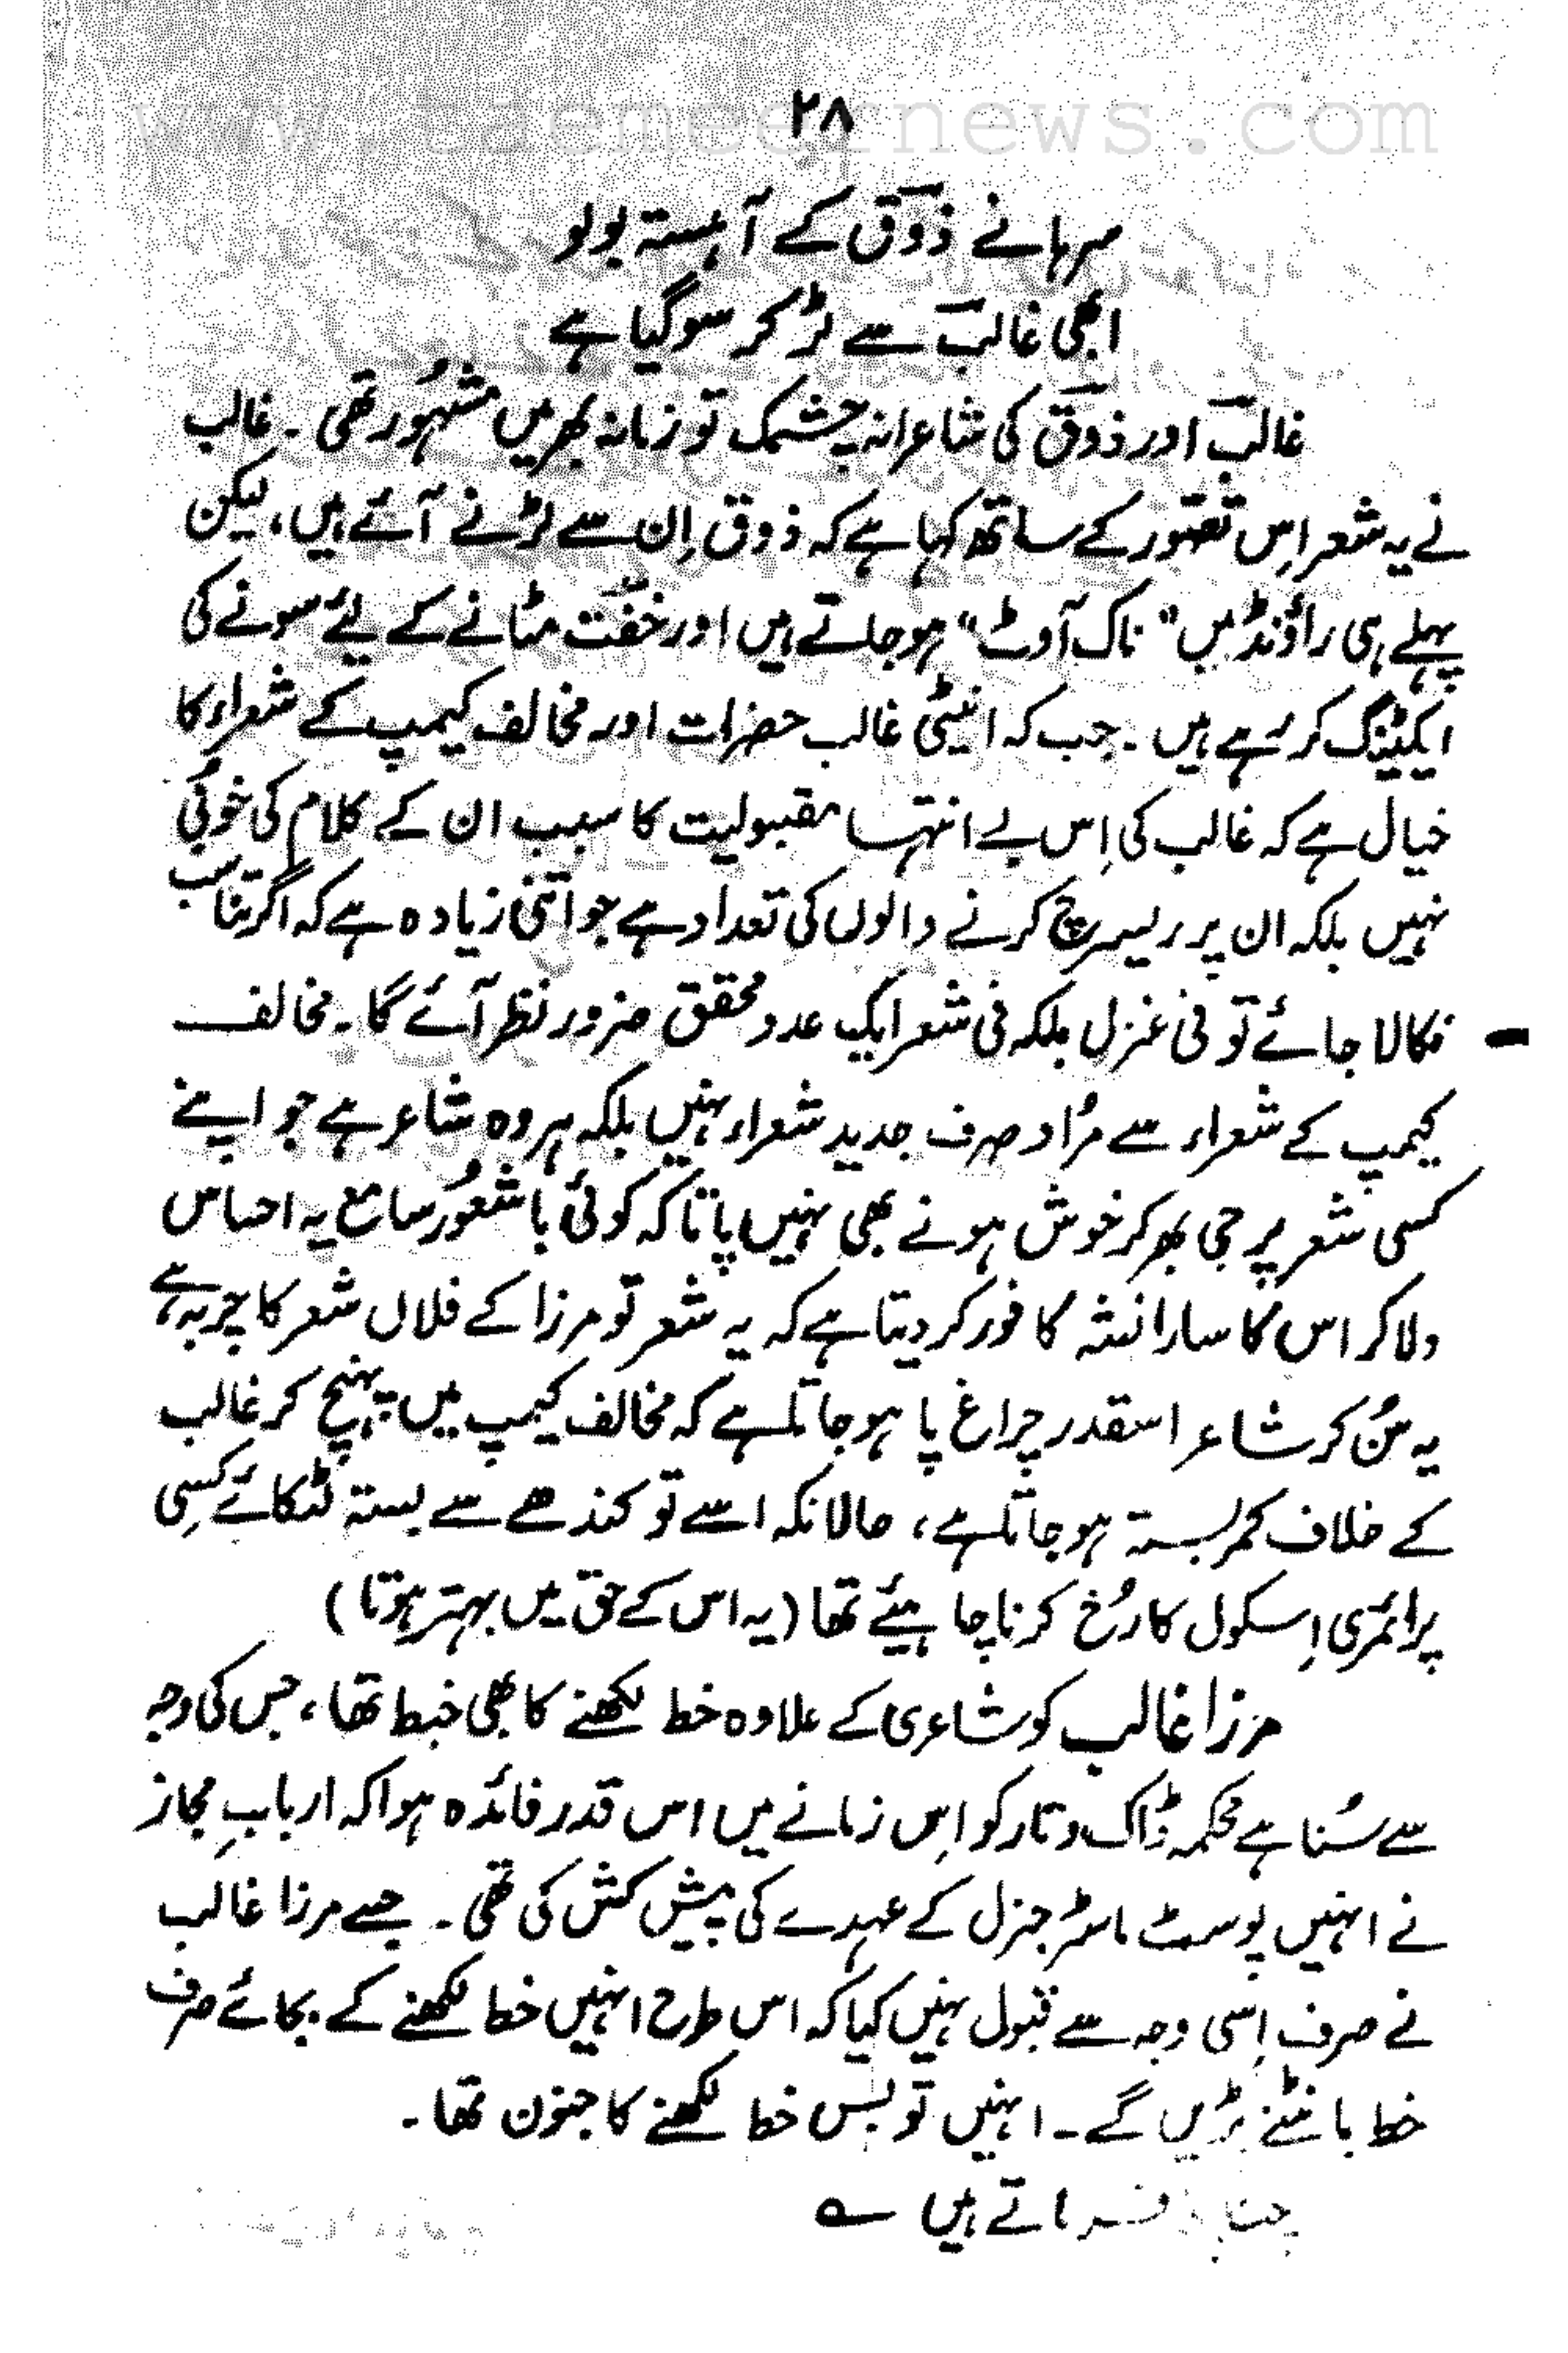 www.taemeernews.com
۲۸
سرہانے ذوقؔ کے آہستہ بولو
ابھی غالبؔ سے لڑ کر سو گیا ہے
غالبؔ اور ذوقؔ کی شاعرانہ چشمک تو زمانہ بھر میں مشہُور تھی ۔ غالب
نے یہ شعر اِس تصّور کے ساتھ کہا ہے کہ ذوق اِن سے لڑنے آئے ہیں، لیکن
پہلے ہی راؤنڈ میں "ناک آوٹ" ہو جاتے ہیں اور خفّت مٹانے کے لئے سونے کی
ایکٹینگ کر رہے ہیں ۔ جب کہ انیٹی غالب حضرات اور مخالف کیمپ کے شعراء کا
خیال ہے کہ غالب کی اِس بے انتہا مقبولیت کا سبب ان کے کلام کی خوُبی
نہیں بلکہ ان پر ریسرچ کرنے والوں کی تعداد ہے جو اتنی زیادہ ہے کہ اگر تناسب
نکالا جائے تو فی غزل بلکہ فی شعر ایک عدد محقق ضرور نظر آئے گا ۔ مخالف
کیمپ کے شعراء سے مرُاد صرف جدید شعراء نہیں بلکہ ہر وہ شاعر ہے جو اپنے
کسی شعر پر جی بھر کر خوش ہونے بھی نہیں پاتا کہ کوئی با شعوُر سامع یہ احساس
دلا کر اس کا سارا نشہ کافور کر دیتا ہے کہ یہ شعر تو مرزا کے فلاں شعر کا چربہ ہے،
یہ سُن کر شاعر اسقدر چراغ پا ہو جاتا ہے کہ مخالف کیمپ میں پہنچ کر غالب
کے خلاف کمر بستہ ہو جاتا ہے، حالانکہ اسے تو کندھے سے بستہ لٹکائے کسِی
پرائمری اِسکول کا رُخ کرنا چاہیئے تھا (یہ اس کے حق میں بہتر ہوتا)
مرزا غالب کو شاعری کے علاوہ خط لکھنے کا بھی خبط تھا، جس کی وجہ
سے سُنا ہے محکمہ ڈاک و تار کو اِس زمانے میں اس قدر فائدہ ہوا کہ اربابِ مجاز
نے انہیں پوسٹ ماسٹر جنرل کے عہدے کی پیش کش کی تھی ۔ جسے مرزا غالب
نے صرف اِسی وجہ سے قبول نہیں کیا کہ اس طرح انہیں خط لکھنے کے بجائے صرف
خط بانٹنے پڑیں گے ۔ انہیں تو بس خط لکھنے کا جنون تھا ۔
فرماتے ہیں ؎